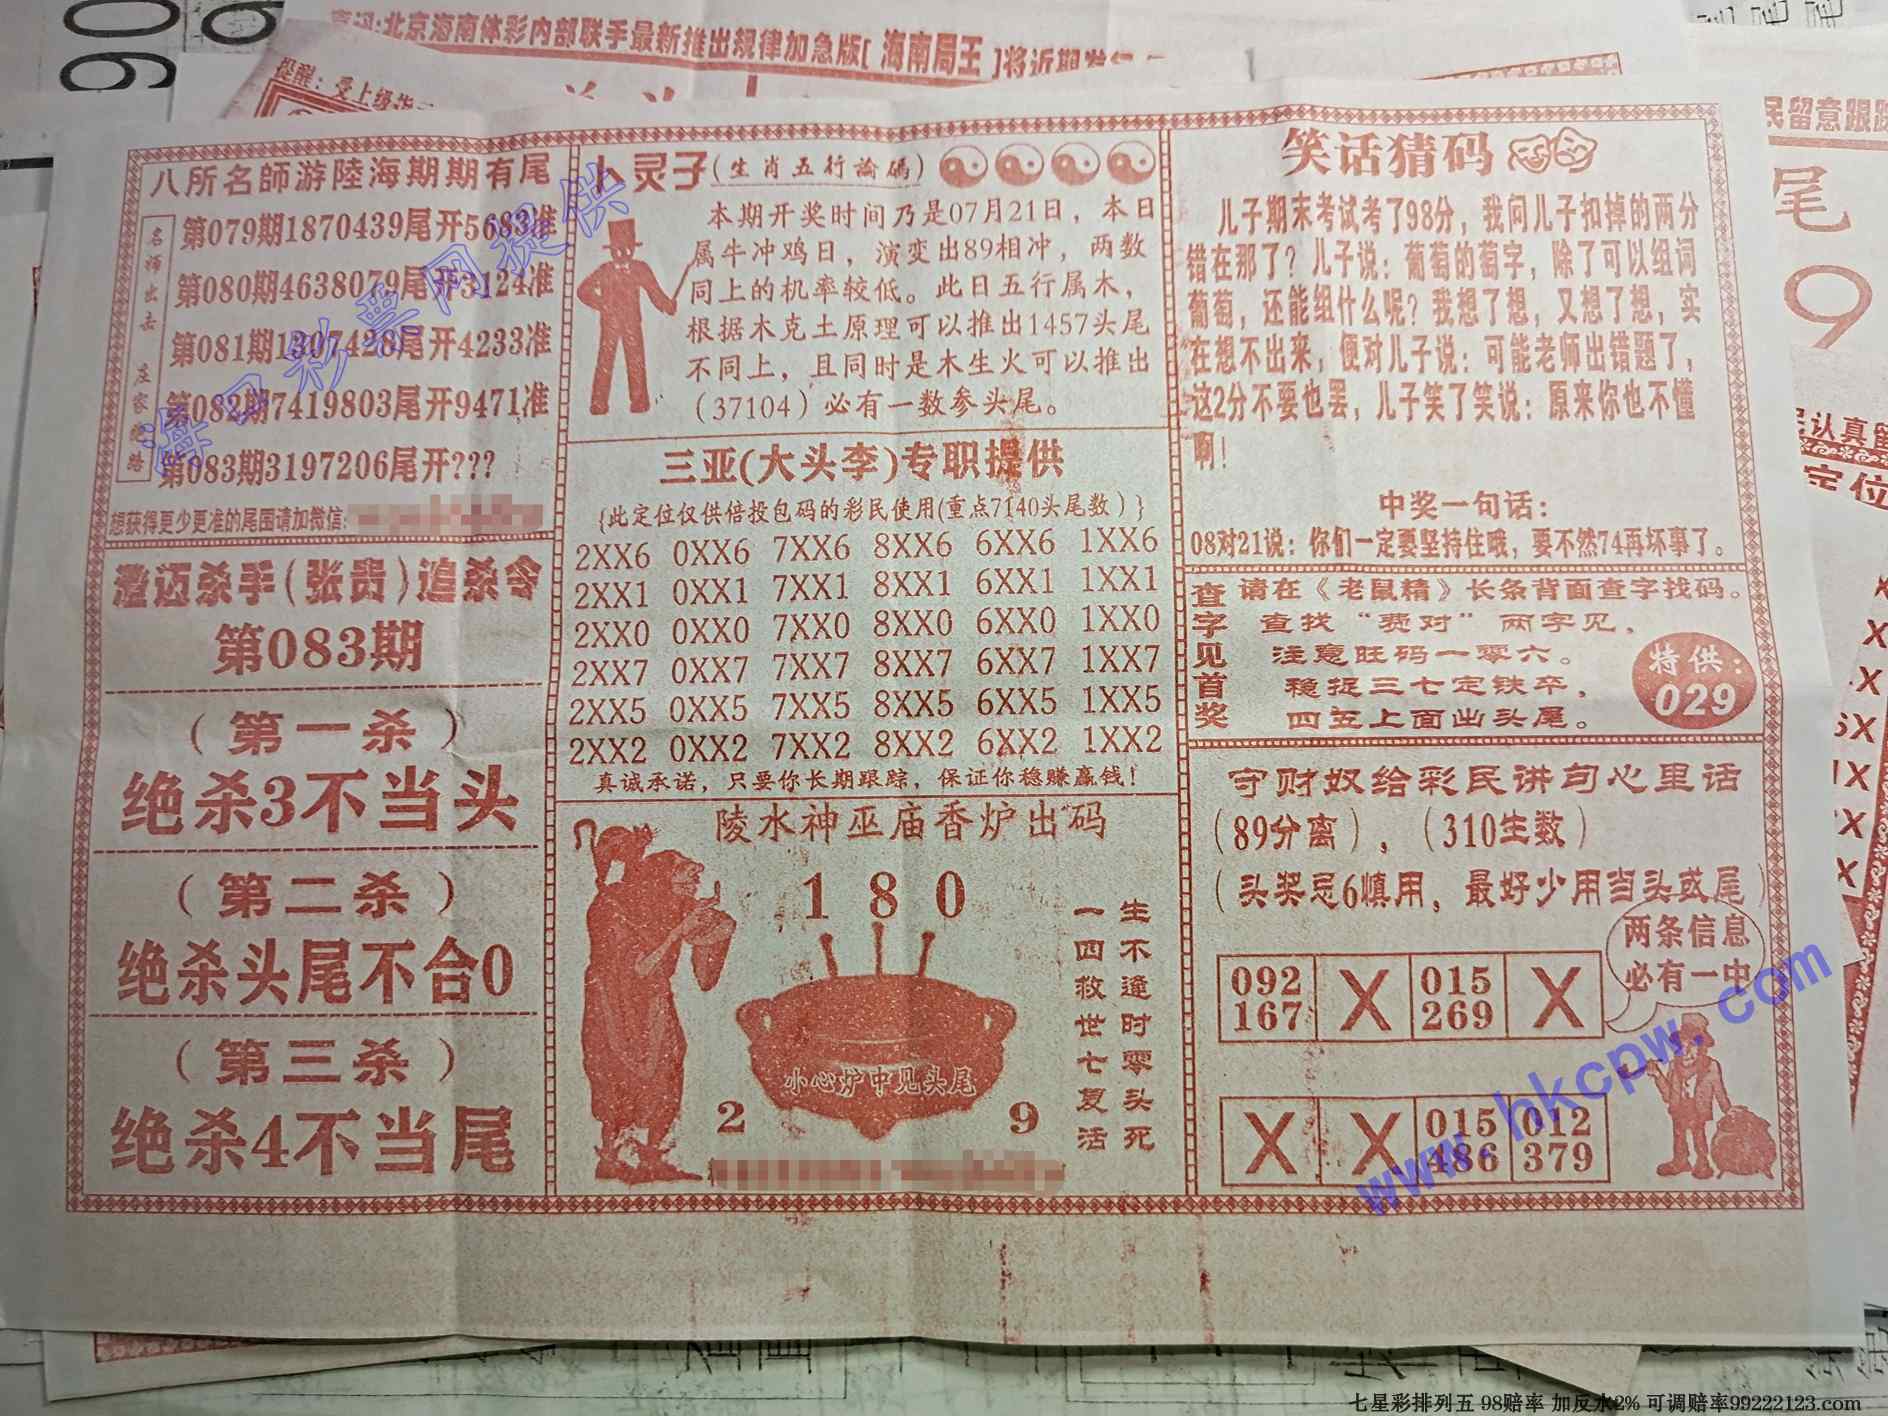 喜讯:北京海南体彩内部联手最新推出规律加急版[ 海南局王 ]将近期
提醒:受上级
民留意跟踪
尾
9
民认真留
定位
八所名師游陸海期期有尾
名师出击 庄家绝路
第079期1870439尾开5683准
第080期4638079尾开3124准
第081期1307428尾开4233准
第082期7419803尾开9471准
第083期3197206尾开???
想获得更少更准的尾围请加微信:
澄迈杀手(张贵)追杀令
第083期
(第一杀)
绝杀3不当头
(第二杀)
绝杀头尾不合0
(第三杀)
绝杀4不当尾
卜灵子(生肖五行論碼)
本期开奖时间乃是07月21日，本日
属牛冲鸡日，演变出89相冲，两数
同上的机率较低。此日五行属木，
根据木克土原理可以推出1457头尾
不同上，且同时是木生火可以推出
（37104）必有一数参头尾。
三亚(大头李)专职提供
{此定位仅供倍投包码的彩民使用(重点7140头尾数)}
2XX6 0XX6 7XX6 8XX6 6XX6 1XX6
2XX1 0XX1 7XX1 8XX1 6XX1 1XX1
2XX0 0XX0 7XX0 8XX0 6XX0 1XX0
2XX7 0XX7 7XX7 8XX7 6XX7 1XX7
2XX5 0XX5 7XX5 8XX5 6XX5 1XX5
2XX2 0XX2 7XX2 8XX2 6XX2 1XX2
真诚承诺，只要你长期跟踪，保证你稳赚赢钱！
陵水神巫庙香炉出码
1 8 0
生不逢时零头死
一四救世七复活
小心炉中见头尾
2 9
笑话猜码
儿子期末考试考了98分，我问儿子扣掉的两分
错在那了？儿子说：葡萄的萄字，除了可以组词
葡萄，还能组什么呢？我想了想，又想了想，实
在想不出来，便对儿子说：可能老师出错题了，
这2分不要也罢，儿子笑了笑说：原来你也不懂
啊！
中奖一句话：
08对21说：你们一定要坚持住哦，要不然74再坏事了。
查字见首奖
请在《老鼠精》长条背面查字找码。
查找“费对”两字见，
注意旺码一零六。
稳捉三七定铁卒，
四五上面出头尾。
特供：
029
守财奴给彩民讲句心里话
（89分离），（310生数）
（头奖忌6慎用，最好少用当头或尾）
两条信息
必有一中
092 167 X 015 269 X
X X 015 486 012 379
海口彩票网提供
www.hkcpw.com
七星彩排列五 98赔率 加反水2% 可调赔率99222123.com